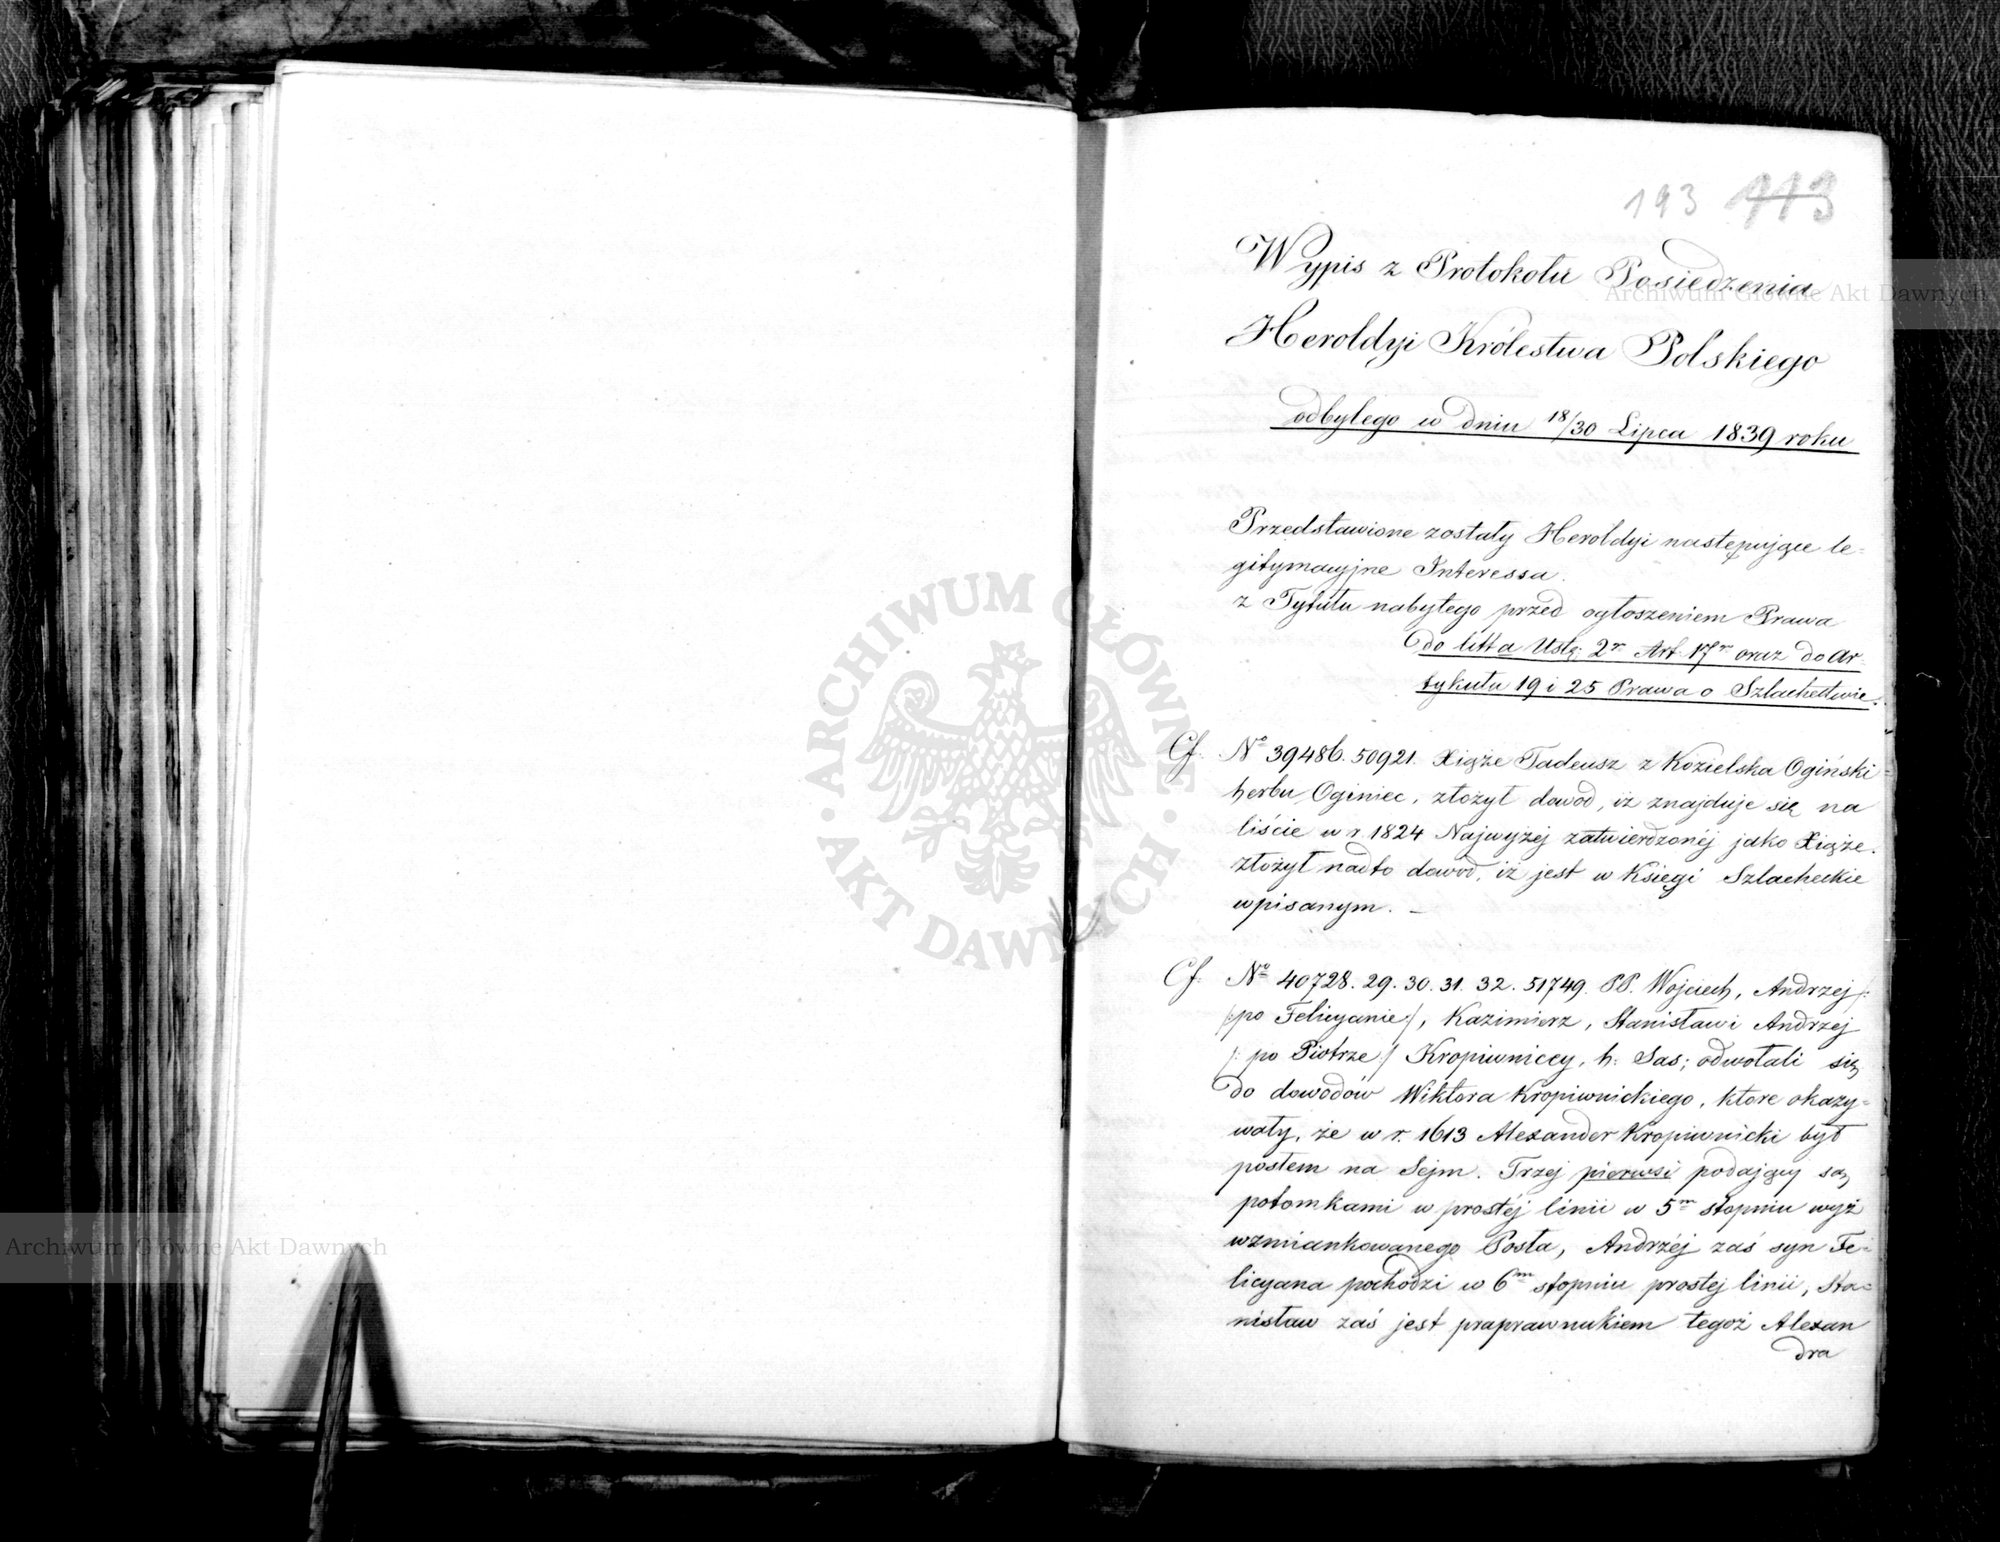 193 113
Wypis z Protokołu Posiedzenia
Heroldyi Królestwa Polskiego
odbytego w dniu 18/30 Lipca 1839 roku
Przedstawione zostały Heroldyi następujące le=
gitymacyjne Interessa.
z Tytułu nabytego przed ogłoszeniem Prawa
do litt a Ustę: 2º Art. 17º oraz do Ar
tykułu 19 i 25 Prawa o Szlachectwie.
Cf. Nº 39486. 50921. Xiąże Tadeusz z Kozielska Ogiński
herbu Oginiec, złożył dowód, iż znajduje się na
liście w r. 1824 Najwyżej zatwierdzonéj jako Xiąże.
złożył nadto dowód, iż jest w Księgi Szlacheckie
wpisanym. —
Cf: Nº 40728. 29. 30. 31. 32. 51749. PP. Wojciech, Andrzej
/:po Felicyanie:/, Kazimierz, Stanisław i Andrzej
/: po Piotrze:/ Kropiwniccy, h: Sas; odwołali się
do dowodów Wiktora Kropiwnickiego, które okazy=
wały, że w r. 1613 Alexander Kropiwnicki był
posłem na Sejm. Trzej pierwsi podający są
potomkami w prostéj linii w 5m stopniu wyż
wzmiankowanego Posła, Andrzéj zaś syn Fe=
licyana pochodzi w 6m stopniu prostej linii, Sta=
nisław zaś jest praprawnukiem tegoż Alexan
dra
Archiwum Główne Akt Dawnych
Archiwum Główne Akt Dawnych
ARCHIWUM GŁÓWNE AKT DAWNYCH